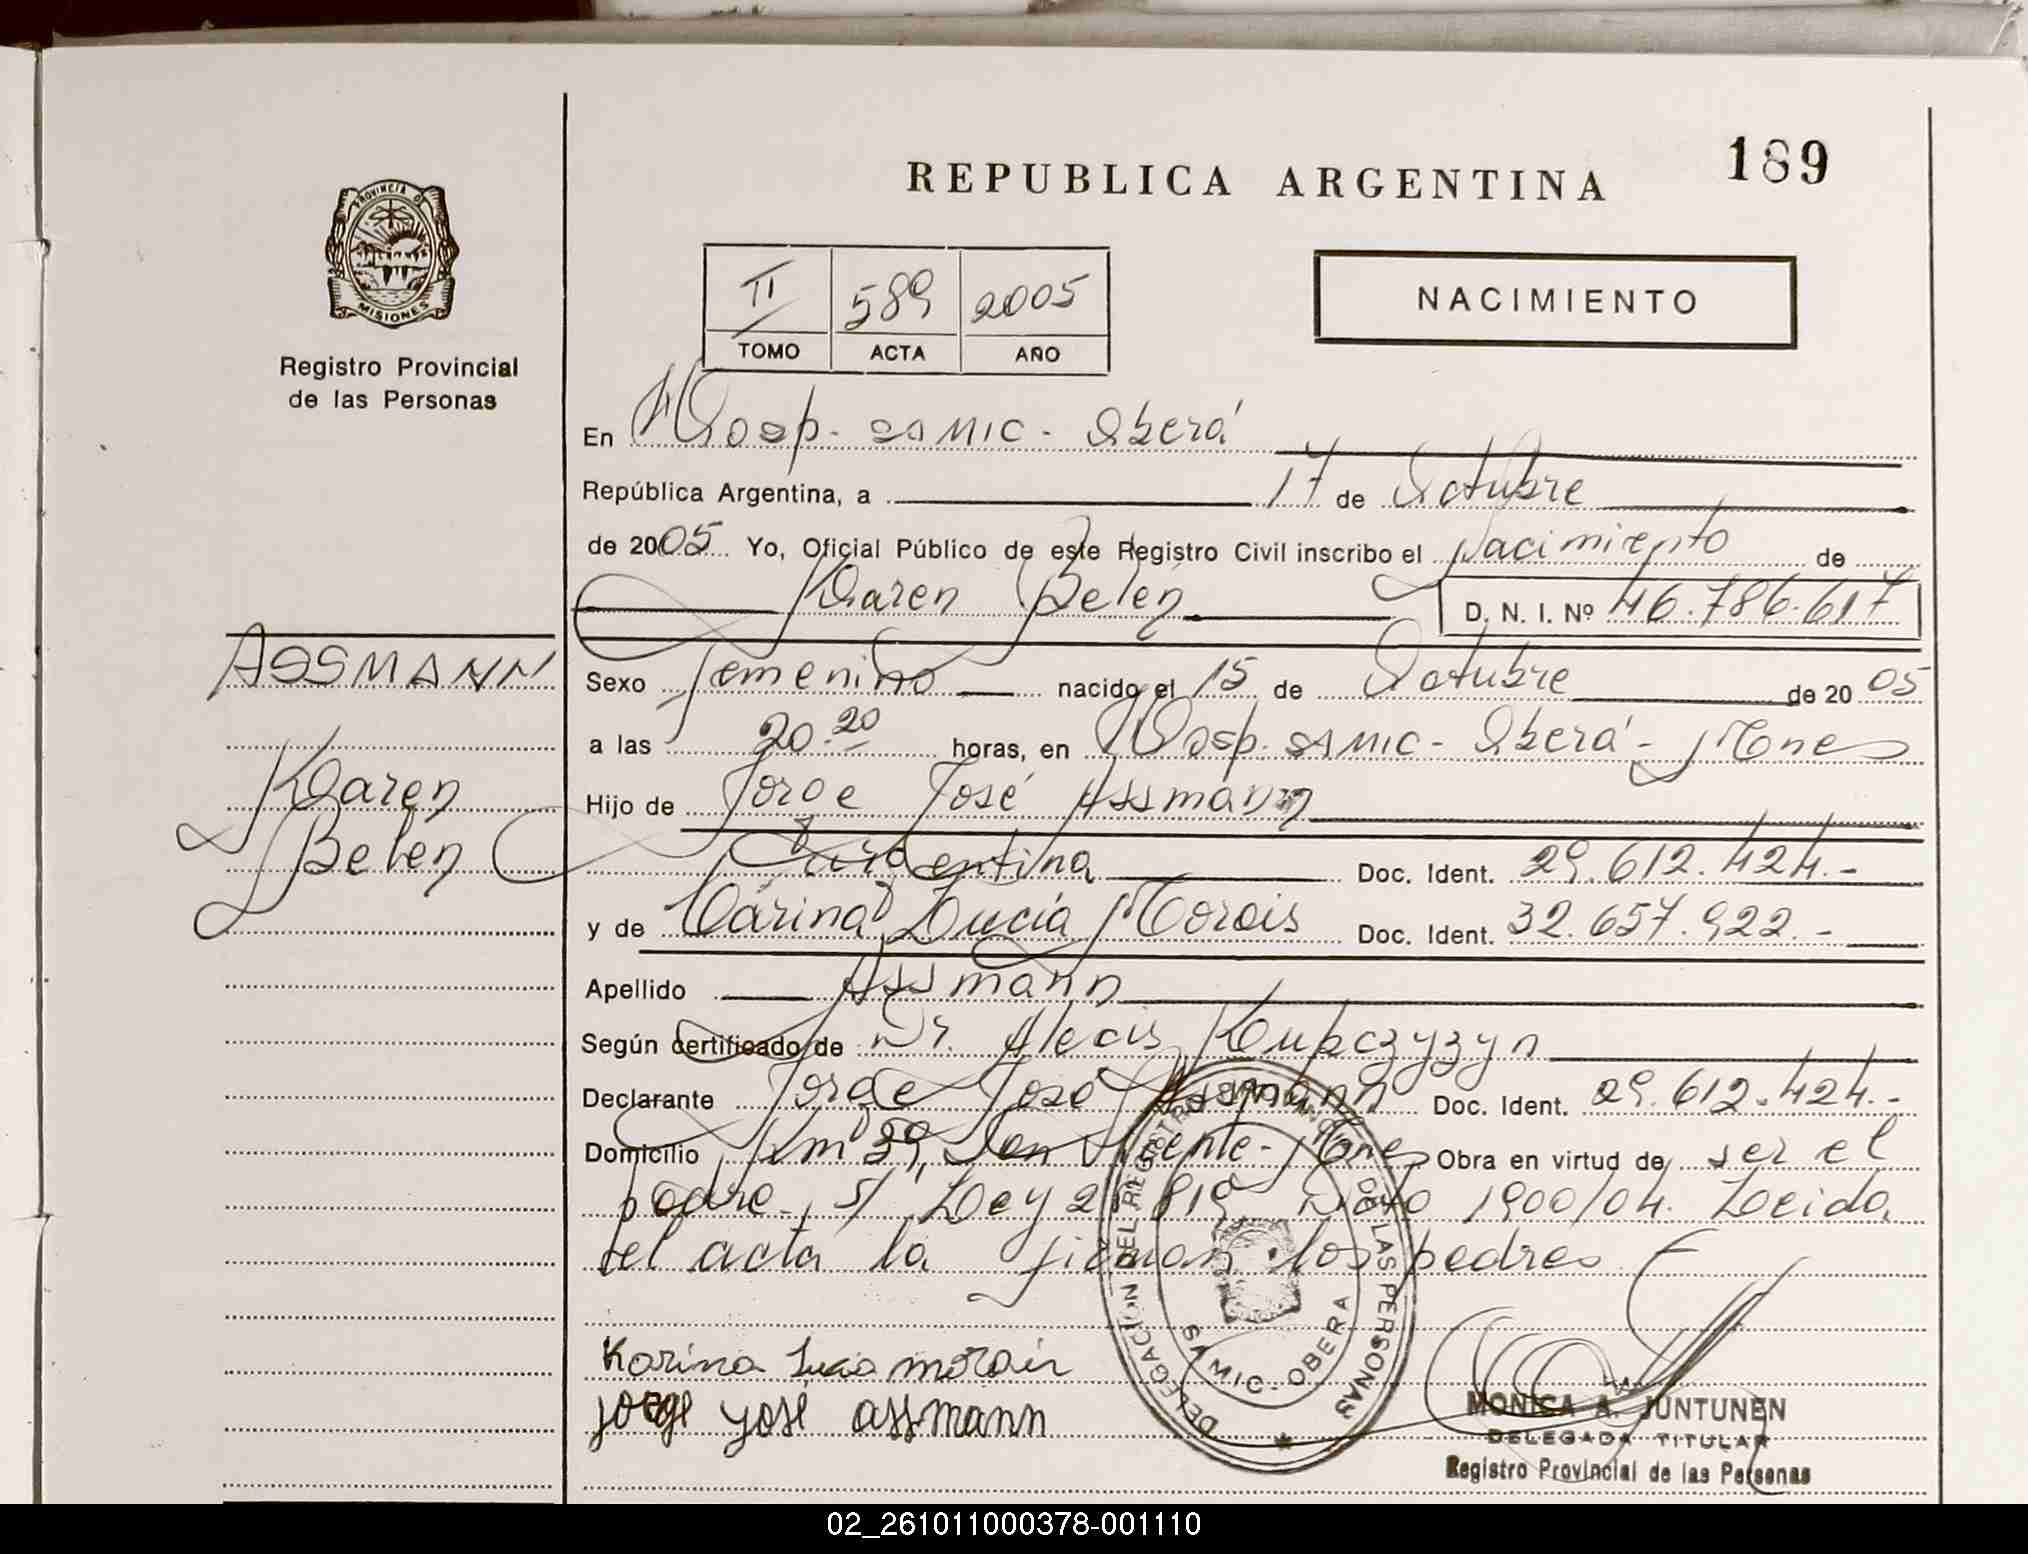 REPUBLICA ARGENTINA
189
PROVINCIA DE
MISIONES
Registro Provincial
de las Personas
II 589 2005
TOMO ACTA AÑO
NACIMIENTO
En Hosp. SAMIC - Oberá
República Argentina, a 17 de Octubre
de 2005 Yo, Oficial Público de este Registro Civil inscribo el Nacimiento de
Karen Belén D. N. I. Nº 46.786.617
ASSMANN
Karen
Belén
Sexo femenino nacido el 15 de Octubre de 2005
a las 20.20 horas, en Hosp. SAMIC - Oberá - Mnes
Hijo de Jorge José Assmann
Argentina Doc. Ident. 29.612.424.-
y de Karina Lucía Morais Doc. Ident. 32.657.922.-
Apellido Assmann
Según certificado de Dr. Alecis Kupczyzyn
Declarante Jorge José Assmann Doc. Ident. 29.612.424.-
Domicilio Km 39, San Vicente - Mnes Obra en virtud de ser el
padre. s/ Ley 2 819 Dto 1900/04. Leida
el acta la firman los padres
Karina Lucia morais
jorge yosé assmann
DELEGACION DEL REGISTRO DE LAS PERSONAS
SAMIC - OBERA
MONICA A. JUNTUNEN
DELEGADA TITULAR
Registro Provincial de las Personas
02_261011000378-001110